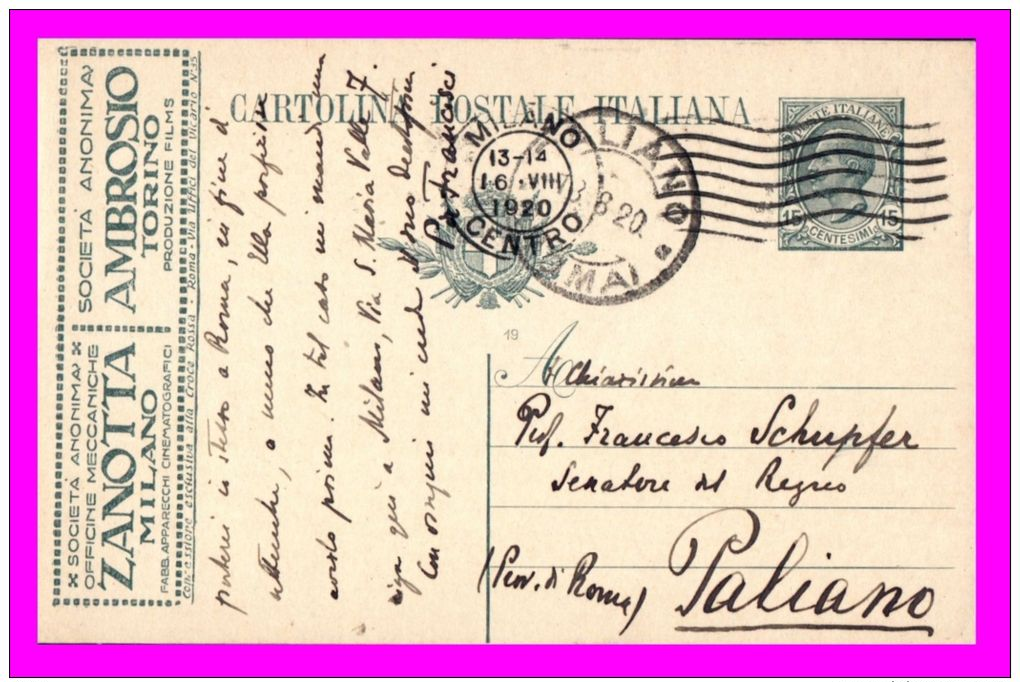 SOCIETÀ ANONIMA
AMBROSIO
TORINO
PRODUZIONE FILMS
SOCIETÀ ANONIMA
OFFICINE MECCANICHE
ZANOTTA
MILANO
FABB. APPARECCHI CINEMATOGRAFICI
Concessione esclusiva alla Croce Rossa - Roma - Via Uffici del Vicario N°35
CARTOLINA POSTALE ITALIANA
POSTE ITALIANE
15 15
CENTESIMI
MILANO
13-14
16 VIII
1920
CENTRO
PALIANO
8 20
ROMA
19
A Chiarissimo
Prof. Francesco Schupfer
Senatore del Regno
(Prov. di Roma)
Paliano
io stesso a Roma, in fine d
a meno che Ella
prima. In tal caso mi mandi una
riga qui a Milano, Via S. Maria Valle 7.
Con ossequi mi creda il suo